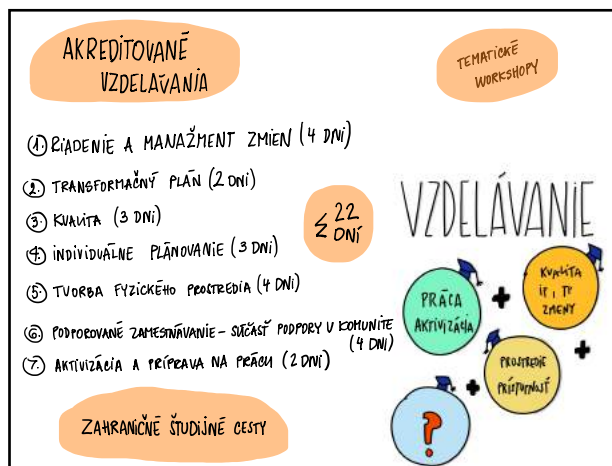 AKREDITOVANÉ
VZDELÁVANIA
TEMATICKÉ
WORKSHOPY
1. RIADENIE A MANAŽMENT ZMIEN (4 DNI)
2. TRANSFORMAČNÝ PLÁN (2 DNI)
3. KVALITA (3 DNI)
4. INDIVIDUÁLNE PLÁNOVANIE (3 DNI)
5. TVORBA FYZICKÉHO PROSTREDIA (4 DNI)
6. PODPOROVANÉ ZAMESTNÁVANIE – SÚČASŤ PODPORY V KOMUNITE
(4 DNI)
7. AKTIVIZÁCIA A PRÍPRAVA NA PRÁCU (2 DNI)
Σ 22
DNÍ
ZAHRANIČNÉ ŠTUDIJNÉ CESTY
VZDELÁVANIE
PRÁCA
AKTIVIZÁCIA
+
KVALITA
IP, TP
ZMENY
+
PROSTREDIE
PRÍSTUPNOSŤ
+
?